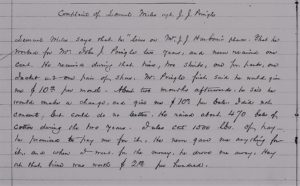 Complaint of Samuel Miles agt. J. J. Pringle
Samuel Miles says that he lives on Mr. J. J. place. That he
worked for Mr. John J. Pringle two years, and never received one
cent. He received during that time, two shirts, one pr. pants, one
Jacket and one pair of shoes. Mr. Pringle first said he would give
me $10 00 per month. About two months afterwards he said he
would make a change, and give me $10 00 per bale. I did not
consent, but could do no better. He raised about 4 1/2 bales of
cotton during the two years. I also cut 1500 lbs. of hay
he promised to pay me for it. He never gave me anything for
it, and when I went for the money, he drove me away. Hay
at that time was worth $2 00 per hundred.